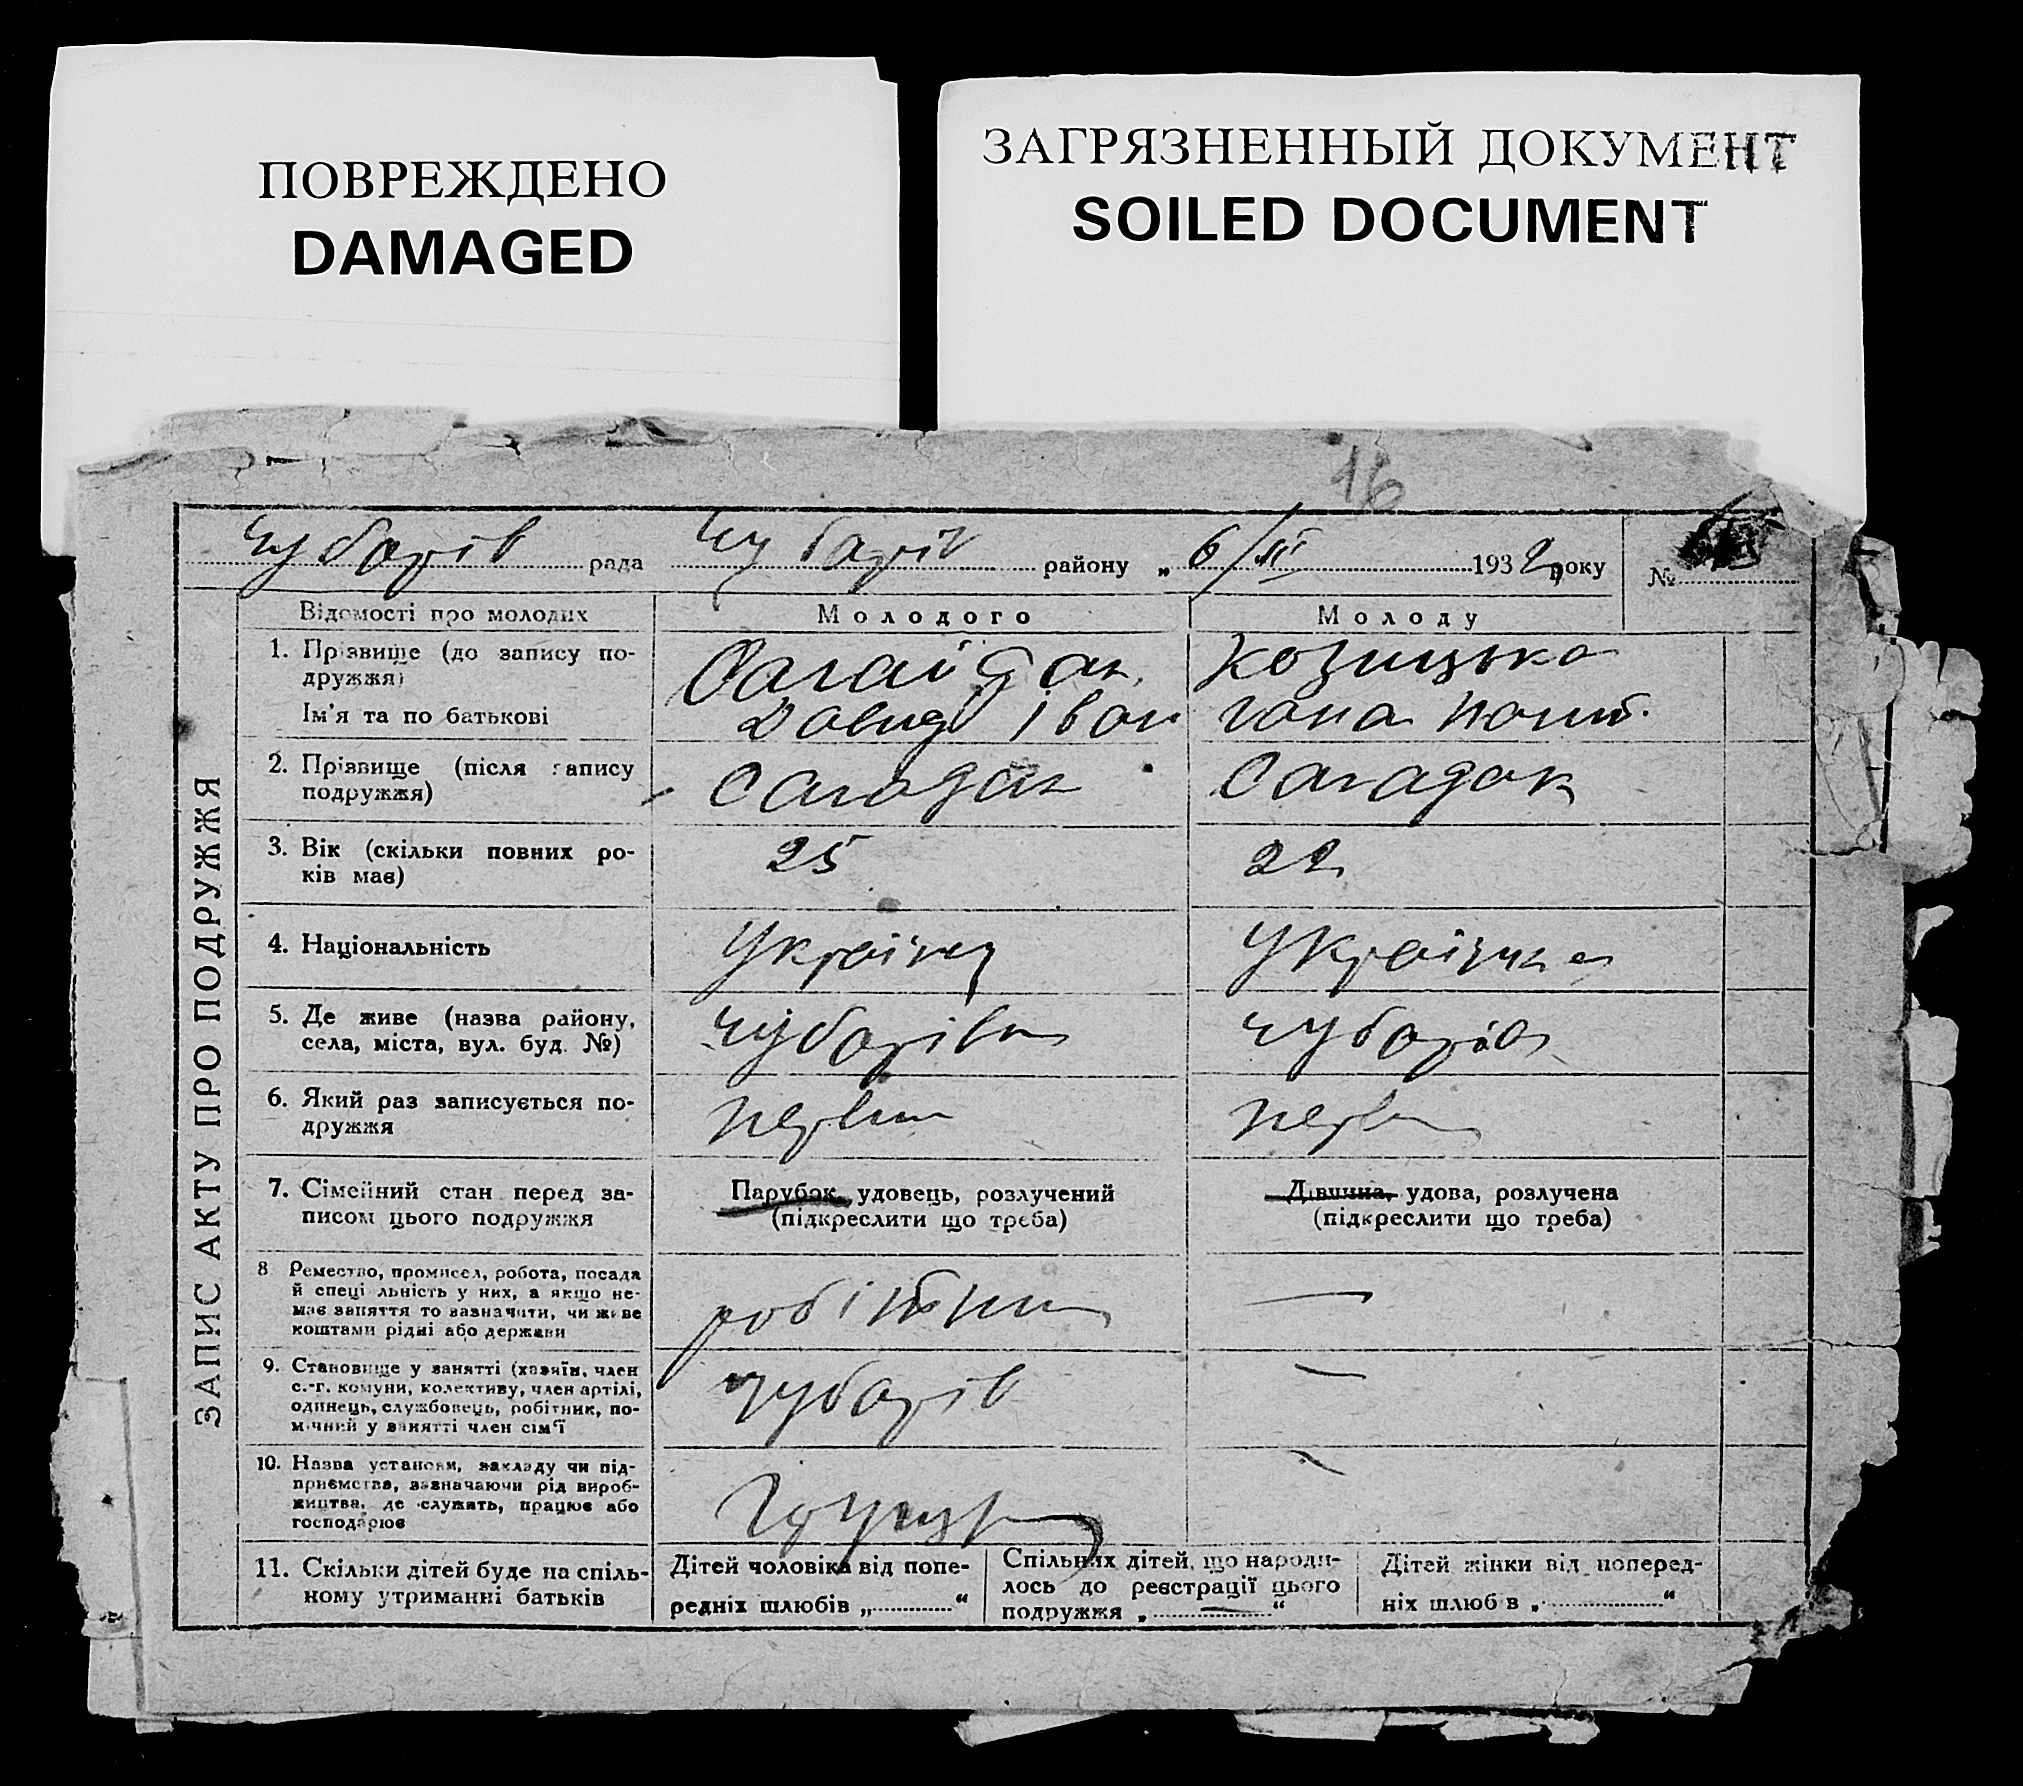 ПОВРЕЖДЕНО
DAMAGED
ЗАГРЯЗНЕННЫЙ ДОКУМЕНТ
SOILED DOCUMENT
16
Чубарів рада Чубарів району „ 6/III 1932 року №
ЗАПИС АКТУ ПРО ПОДРУЖЖЯ
Відомості про молодих
Молодого
Молоду
1. Прізвище (до запису по-
дружжя)
Ім'я та по батькові
Сагайдак
Давид Іван
Козицька
Гана
2. Прізвище (після запису
подружжя)
Сагадак
Сагадак
3. Вік (скільки повних ро-
ків має)
25
22
4. Національність
Українц
Українка
5. Де живе (назва району,
села, міста, вул. буд. №)
Чубарівка
Чубарів
6. Який раз записується по-
дружжя
перви
перв
7. Сімейний стан перед за-
писом цього подружжя
Парубок, удовець, розлучений
(підкреслити що треба)
Дівчина, удова, розлучена
(підкреслити що треба)
8 Ремество, промисел, робота, посада
й спеці льність у них, а якщо не-
має заняття то зазначити, чи живе
коштами рідні або держави
робітник
—
9. Становище у занятті (хазяїн, член
с.-г. комуни, колективу, член артілі,
одинець, службовець, робітник, по-
мічний у занятті член сім'ї
Чубарів
—
10. Назва установи, закладу чи під-
приємства, зазначаючи рід вироб-
ництва, де служить, працює або
господарює
11. Скільки дітей буде на спіль-
ному утриманні батьків
Дітей чоловіка від попе-
редніх шлюбів „ “
Спільних дітей, що народи-
лось до реєстрації цього
подружжя „ — “
Дітей жінки від поперед-
ніх шлюб в „ “